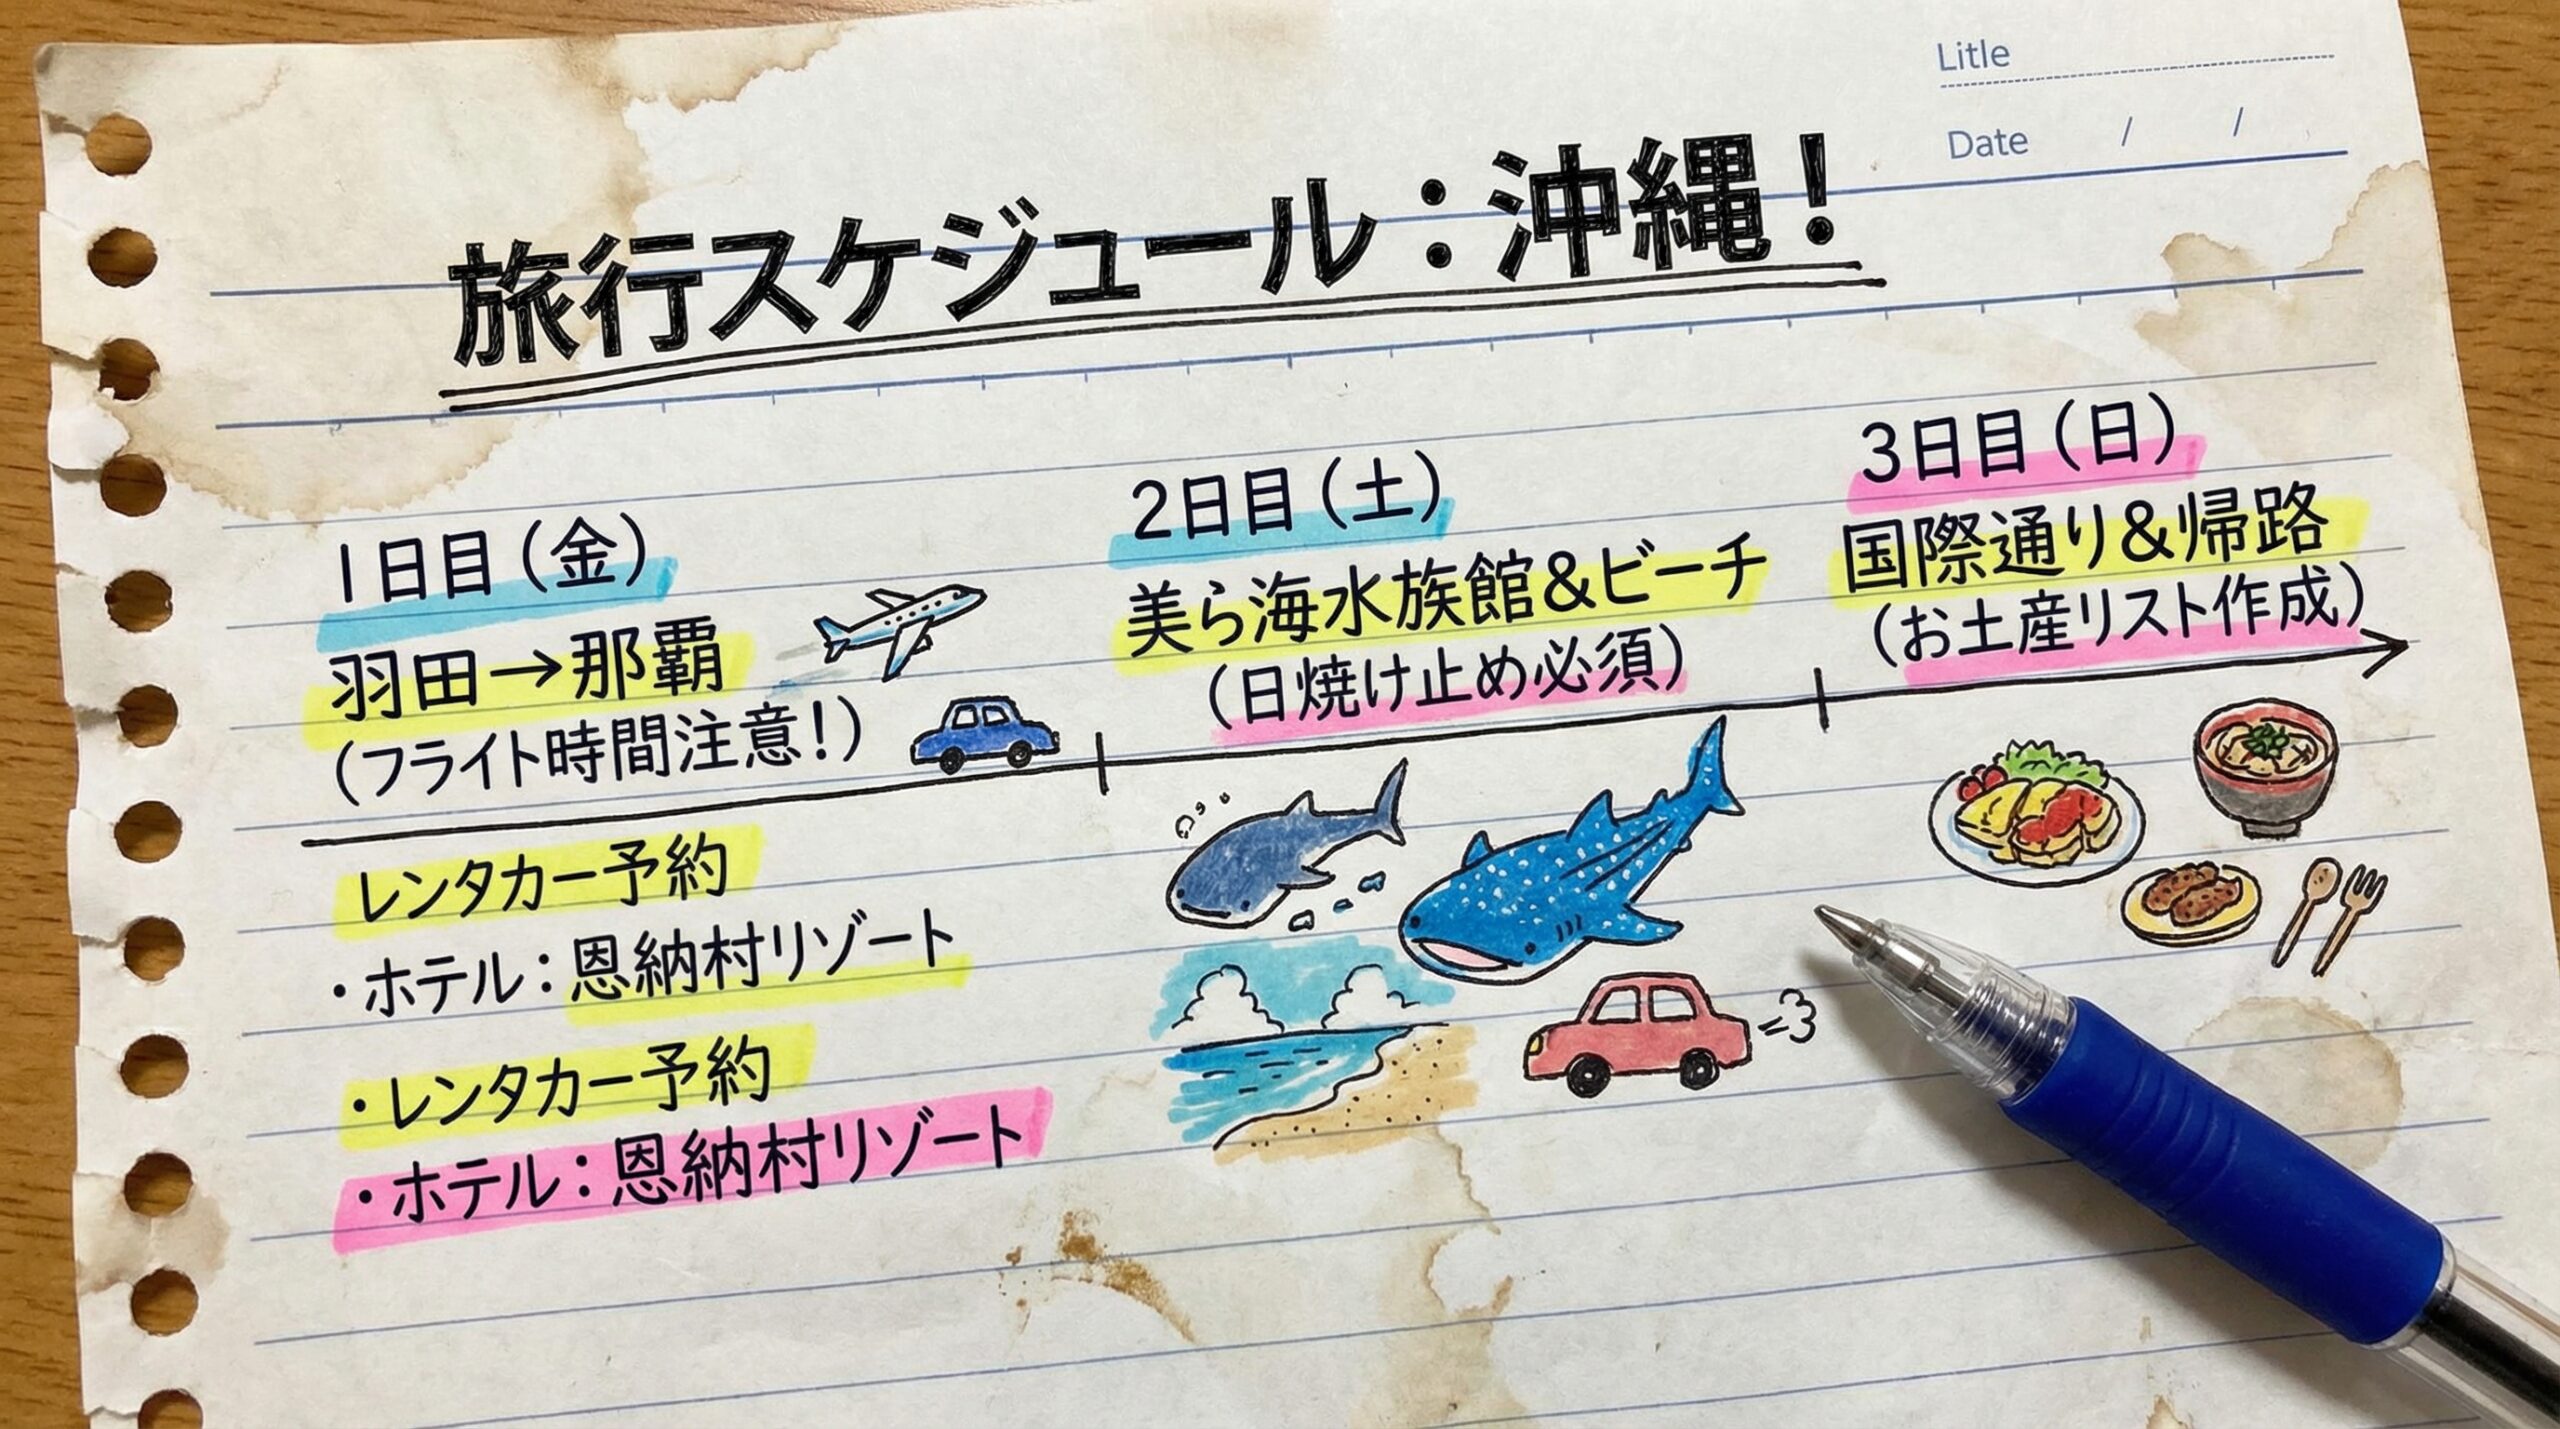 Litle
Date / /
旅行スケジュール：沖縄！
1日目（金）
羽田→那覇
（フライト時間注意！）
2日目（土）
美ら海水族館&ビーチ
（日焼け止め必須）
3日目（日）
国際通り&帰路
（お土産リスト作成）
レンタカー予約
・ホテル：恩納村リゾート
・レンタカー予約
・ホテル：恩納村リゾート